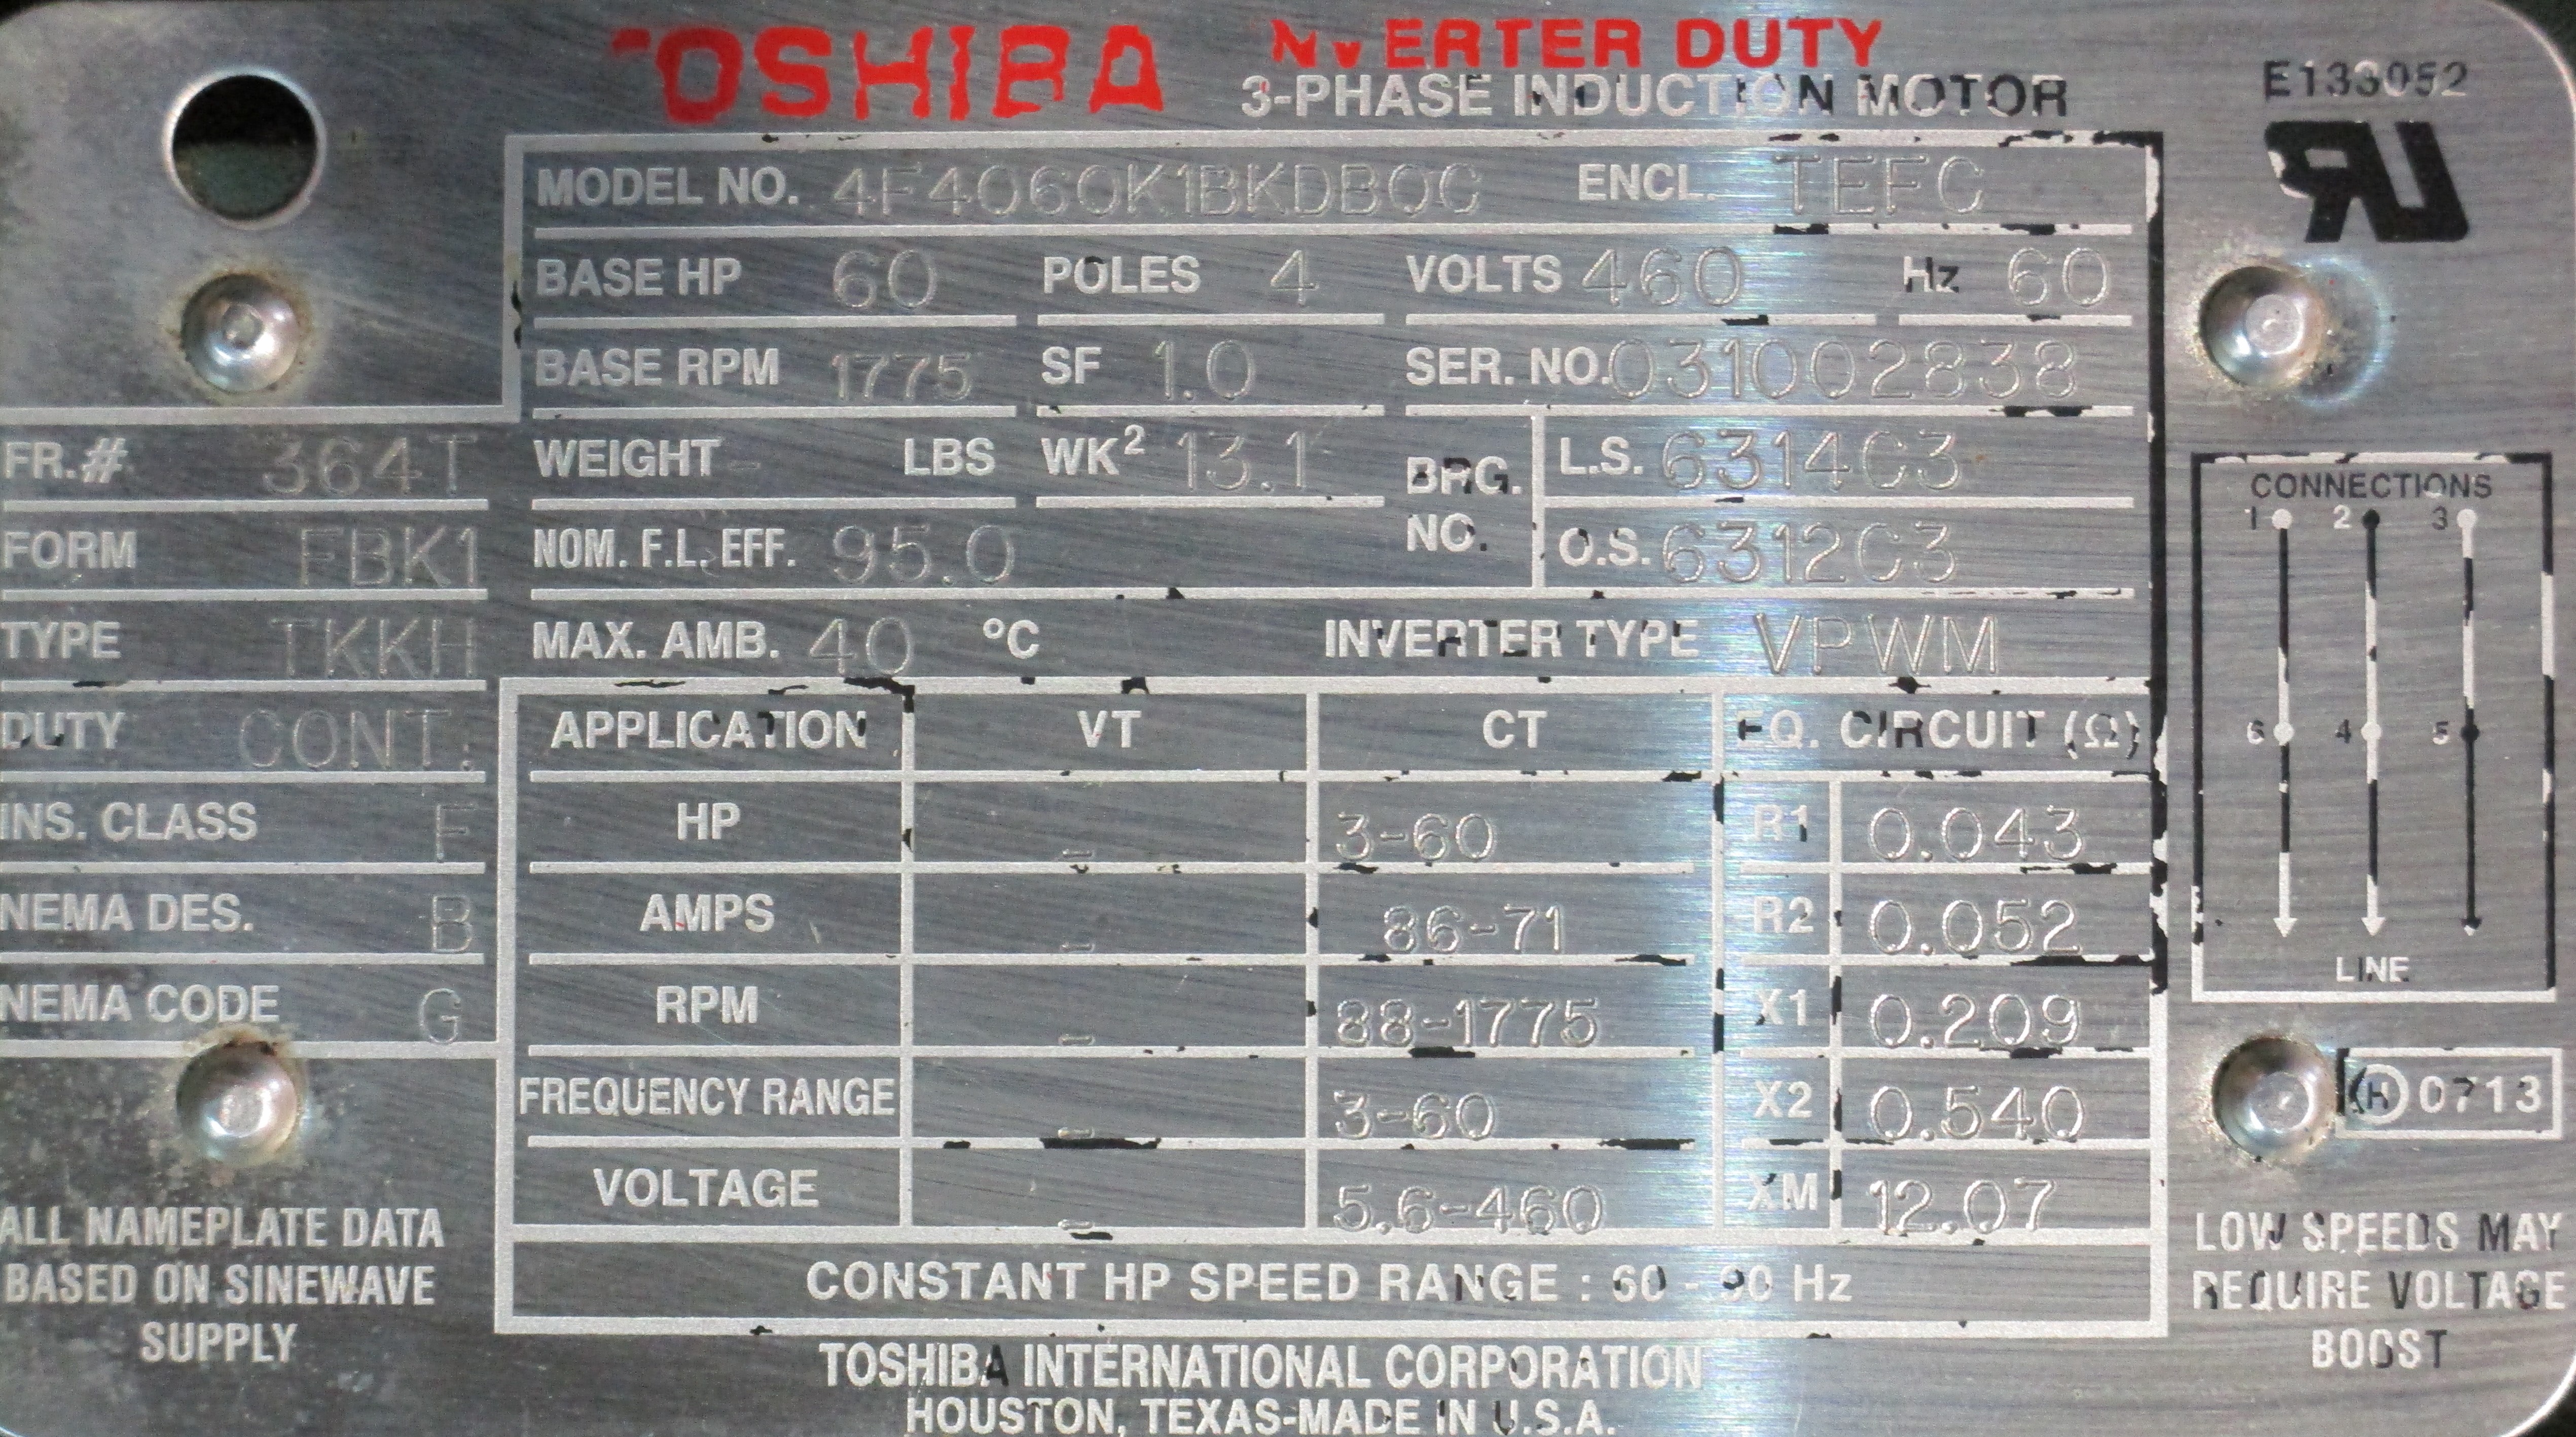 TOSHIBA INVERTER DUTY
3-PHASE INDUCTION MOTOR
E133052
MODEL NO. 4F4060K1BKDBOC ENCL. TEFC
BASE HP 60 POLES 4 VOLTS 460 Hz 60
BASE RPM 1775 SF 1.0 SER. NO. 031002838
FR.# 364T
WEIGHT - LBS WK² 13.1 BRG. NO. L.S. 6314C3
FORM FBK1
NOM. F.L. EFF. 95.0 O.S. 6312C3
TYPE TKKH
MAX. AMB. 40 °C INVERTER TYPE VPWM
DUTY CONT.
INS. CLASS F
NEMA DES. B
NEMA CODE G
APPLICATION VT CT EQ. CIRCUIT (Ω)
HP - 3-60 R1 0.043
AMPS - 86-71 R2 0.052
RPM - 88-1775 X1 0.209
FREQUENCY RANGE - 3-60 X2 0.540
VOLTAGE - 5.6-460 XM 12.07
CONSTANT HP SPEED RANGE : 60 - 90 Hz
CONNECTIONS
1 2 3
6 4 5
LINE
H 0713
ALL NAMEPLATE DATA
BASED ON SINEWAVE
SUPPLY
LOW SPEEDS MAY
REQUIRE VOLTAGE
BOOST
TOSHIBA INTERNATIONAL CORPORATION
HOUSTON, TEXAS-MADE IN U.S.A.